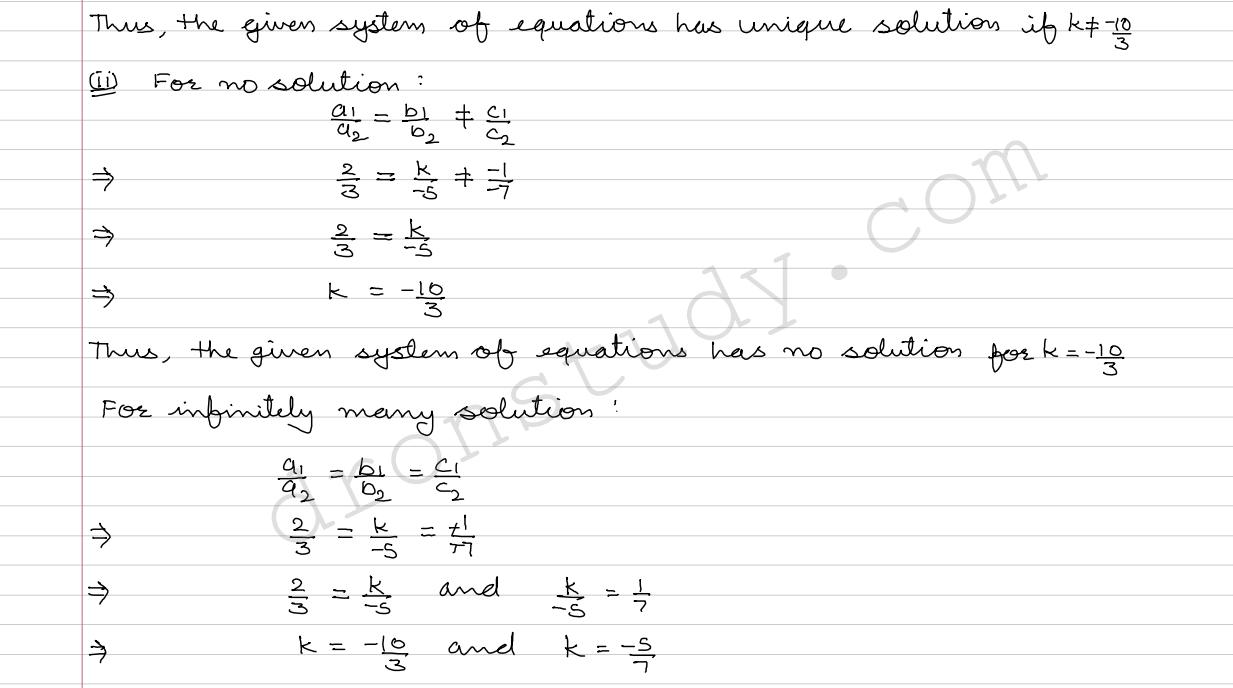 Thus, the given system of equations has unique solution if k ≠ -10/3
(ii) For no solution :
a1/a2 = b1/b2 ≠ c1/c2
⇒ 2/3 = k/-5 ≠ -1/-7
⇒ 2/3 = k/-5
⇒ k = -10/3
Thus, the given system of equations has no solution for k = -10/3
For infinitely many solution :
a1/a2 = b1/b2 = c1/c2
⇒ 2/3 = k/-5 = +1/+7
⇒ 2/3 = k/-5 and k/-5 = 1/7
⇒ k = -10/3 and k = -5/7
dronstudy.com